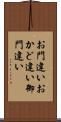 お門違いお
かど違い御
門違い